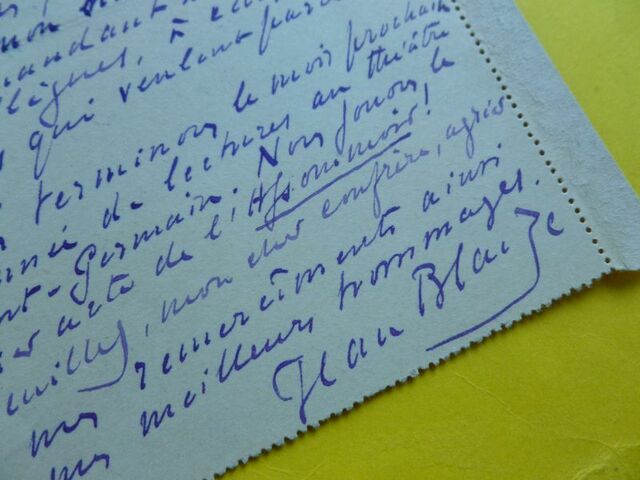 mandant
lignes, à
qui veulent
terminons le mois prochain
de lectures au théâtre
t-Germain. Nous jouons le
er acte de l'Assommoir!
euillez, mon cher confrère, agréer
mes remerciments ainsi
mes meilleurs hommages.
Jean Blaize